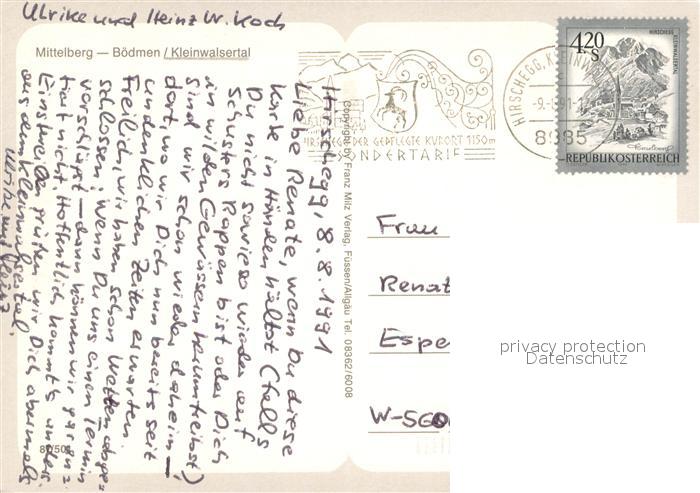 Ulrike und Heinz W. Koch
Mittelberg — Bödmen / Kleinwalsertal
Hirschegg, 8.8.1991
Liebe Renate, wenn Du diese
Karte in Händen hältst (falls
Du nicht sowieso wieder auf
Schusters Rappen bist oder Dich
in wilden Gewässern herumtreibst)
sind wir schon wieder daheim –
dort, wo wir Dich nun bereits seit
undenklichen Zeiten erwarten.
Freilich, wir haben schon Wetten abge-
schlossen; wenn Du uns einen Termin
vorschlägst – dann können wir garanz-
tiert nicht. Hoffentlich kommt's anders.
Einstweilen grüßen wir Dich abermals
aus dem Kleinwalsertal.
Ulrike und Heinz
89/501
Copyright by Franz Milz Verlag, Füssen/Allgäu Tel. 08362/6008
HIRSCHEGG DER GEPFLEGTE KURORT 1150m
SONDERTARIF
HIRSCHEGG, KLEINW
-9.-8.91-1
8985
HIRSCHEGG
KLEINWALSERTAL
4.20
S
REPUBLIK ÖSTERREICH
Frau
Renat
Espe
W-560
privacy protection
Datenschutz